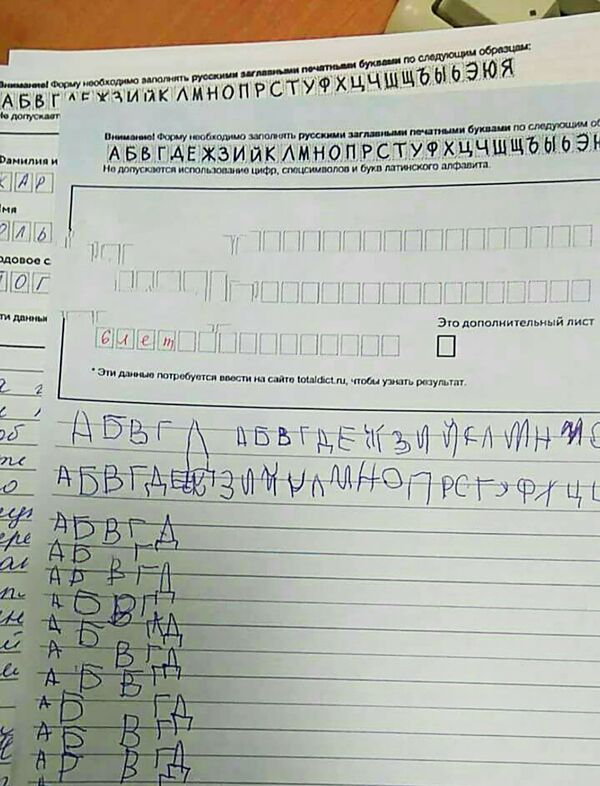 Внимание! Форму необходимо заполнять русскими заглавными печатными буквами по следующим образцам:
А Б В Г Д Е Ж З И Й К Л М Н О П Р С Т У Ф Х Ц Ч Ш Щ Ъ Ы Ь Э Ю Я
Не допускает
Фамилия и
КАР
Имя
ОЛЬ
одовое с
ПОГ
ти данны
Внимание! Форму необходимо заполнять русскими заглавными печатными буквами по следующим об
А Б В Г Д Е Ж З И Й К Л М Н О П Р С Т У Ф Х Ц Ч Ш Щ Ъ Ы Ь Э Ю
Не допускается использование цифр, спецсимволов и букв латинского алфавита.
6 лет
Это дополнительный лист
* Эти данные потребуется ввести на сайте totaldict.ru, чтобы узнать результат.
А Б В Г Д А Б В Г Д Е Ж З И Й К Л М Н
А Б В Г Д Е Ж З И Й К Л М Н О П Р С Т У Ф Х Ц Ц
А Б В Г Д
А Б Г
А Б В Г Д
А Б В Г
А Б Д
А В Г Д
А Б В
А Б Г Д
А Б В Г
А Р В Г Д